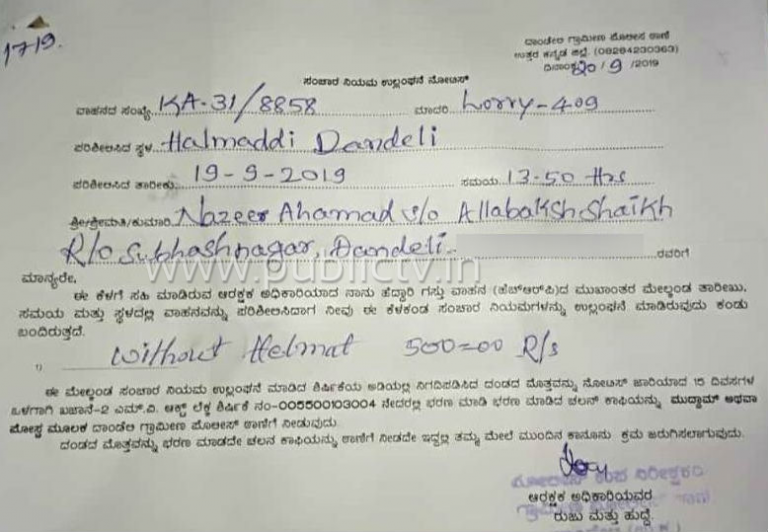 1719.
ದಾಂಡೇಲಿ ಗ್ರಾಮೀಣ ಪೊಲೀಸ ಠಾಣೆ
ಉತ್ತರ ಕನ್ನಡ ಜಿಲ್ಲೆ. (08284230363)
ದಿನಾಂಕ 20/9/2019
ಸಂಚಾರ ನಿಯಮ ಉಲ್ಲಂಘನೆ ನೋಟಿಸ್
ವಾಹನದ ಸಂಖ್ಯೆ KA-31/8858 ಮಾದರಿ Lorry-409
ಪರಿಶೀಲಿಸಿದ ಸ್ಥಳ Halmaddi Dandeli
ಪರಿಶೀಲಿಸಿದ ತಾರೀಕು 19-9-2019 ಸಮಯ 13-50 Hrs
ಶ್ರೀ/ಶ್ರೀಮತಿ/ಕುಮಾರಿ Nazeer Ahamad s/o Allabaksh Shaikh
R/o Subhashnagar, Dandeli. ರವರಿಗೆ
www.publictv.in
ಮಾನ್ಯರೇ,
ಈ ಕೆಳಗೆ ಸಹಿ ಮಾಡಿರುವ ಆರಕ್ಷಕ ಅಧಿಕಾರಿಯಾದ ನಾನು ಹೆದ್ದಾರಿ ಗಸ್ತು ವಾಹನ (ಹೆಚ್‌ಆರ್‌ಪಿ)ದ ಮುಖಾಂತರ ಮೇಲ್ಕಂಡ ತಾರೀಖು,
ಸಮಯ ಮತ್ತು ಸ್ಥಳದಲ್ಲಿ ವಾಹನವನ್ನು ಪರಿಶೀಲಿಸಿದಾಗ ನೀವು ಈ ಕೆಳಕಂಡ ಸಂಚಾರ ನಿಯಮಗಳನ್ನು ಉಲ್ಲಂಘನೆ ಮಾಡಿರುವುದು ಕಂಡು
ಬಂದಿರುತ್ತದೆ.
1) Without Helmat 500=00 R/s
ಈ ಮೇಲ್ಕಂಡ ಸಂಚಾರ ನಿಯಮ ಉಲ್ಲಂಘನೆ ಮಾಡಿದ ಶಿರ್ಷಿಕೆಯ ಅಡಿಯಲ್ಲಿ ನಿಗದಿಪಡಿಸಿದ ದಂಡದ ಮೊತ್ತವನ್ನು ನೋಟಿಸ್ ಜಾರಿಯಾದ 15 ದಿವಸಗಳ
ಒಳಗಾಗಿ ಖಜಾನೆ-2 ಎಮ್.ವಿ. ಆಕ್ಟ್ ಲೆಕ್ಕ ಶಿರ್ಷಿಕೆ ನಂ-005500103004 ನೇದರಲ್ಲಿ ಭರಣ ಮಾಡಿ ಭರಣ ಮಾಡಿದ ಚಲನ್ ಕಾಪಿಯನ್ನು ಮುದ್ದಾಮ್ ಅಥವಾ
ಪೋಸ್ಟ ಮೂಲಕ ದಾಂಡೇಲಿ ಗ್ರಾಮೀಣ ಪೊಲೀಸ್ ಠಾಣೆಗೆ ನೀಡುವುದು.
ದಂಡದ ಮೊತ್ತವನ್ನು ಭರಣ ಮಾಡದೇ ಚಲನ ಕಾಪಿಯನ್ನು ಠಾಣೆಗೆ ನೀಡದೇ ಇದ್ದಲ್ಲಿ ತಮ್ಮ ಮೇಲೆ ಮುಂದಿನ ಕಾನೂನು ಕ್ರಮ ಜರುಗಿಸಲಾಗುವುದು.
ಪೊಲೀಸ್ ಉಪ ನಿರೀಕ್ಷಕರು
ಆರಕ್ಷಕ ಅಧಿಕಾರಿಯವರ
ರುಜು ಮತ್ತು ಹುದ್ದೆ.